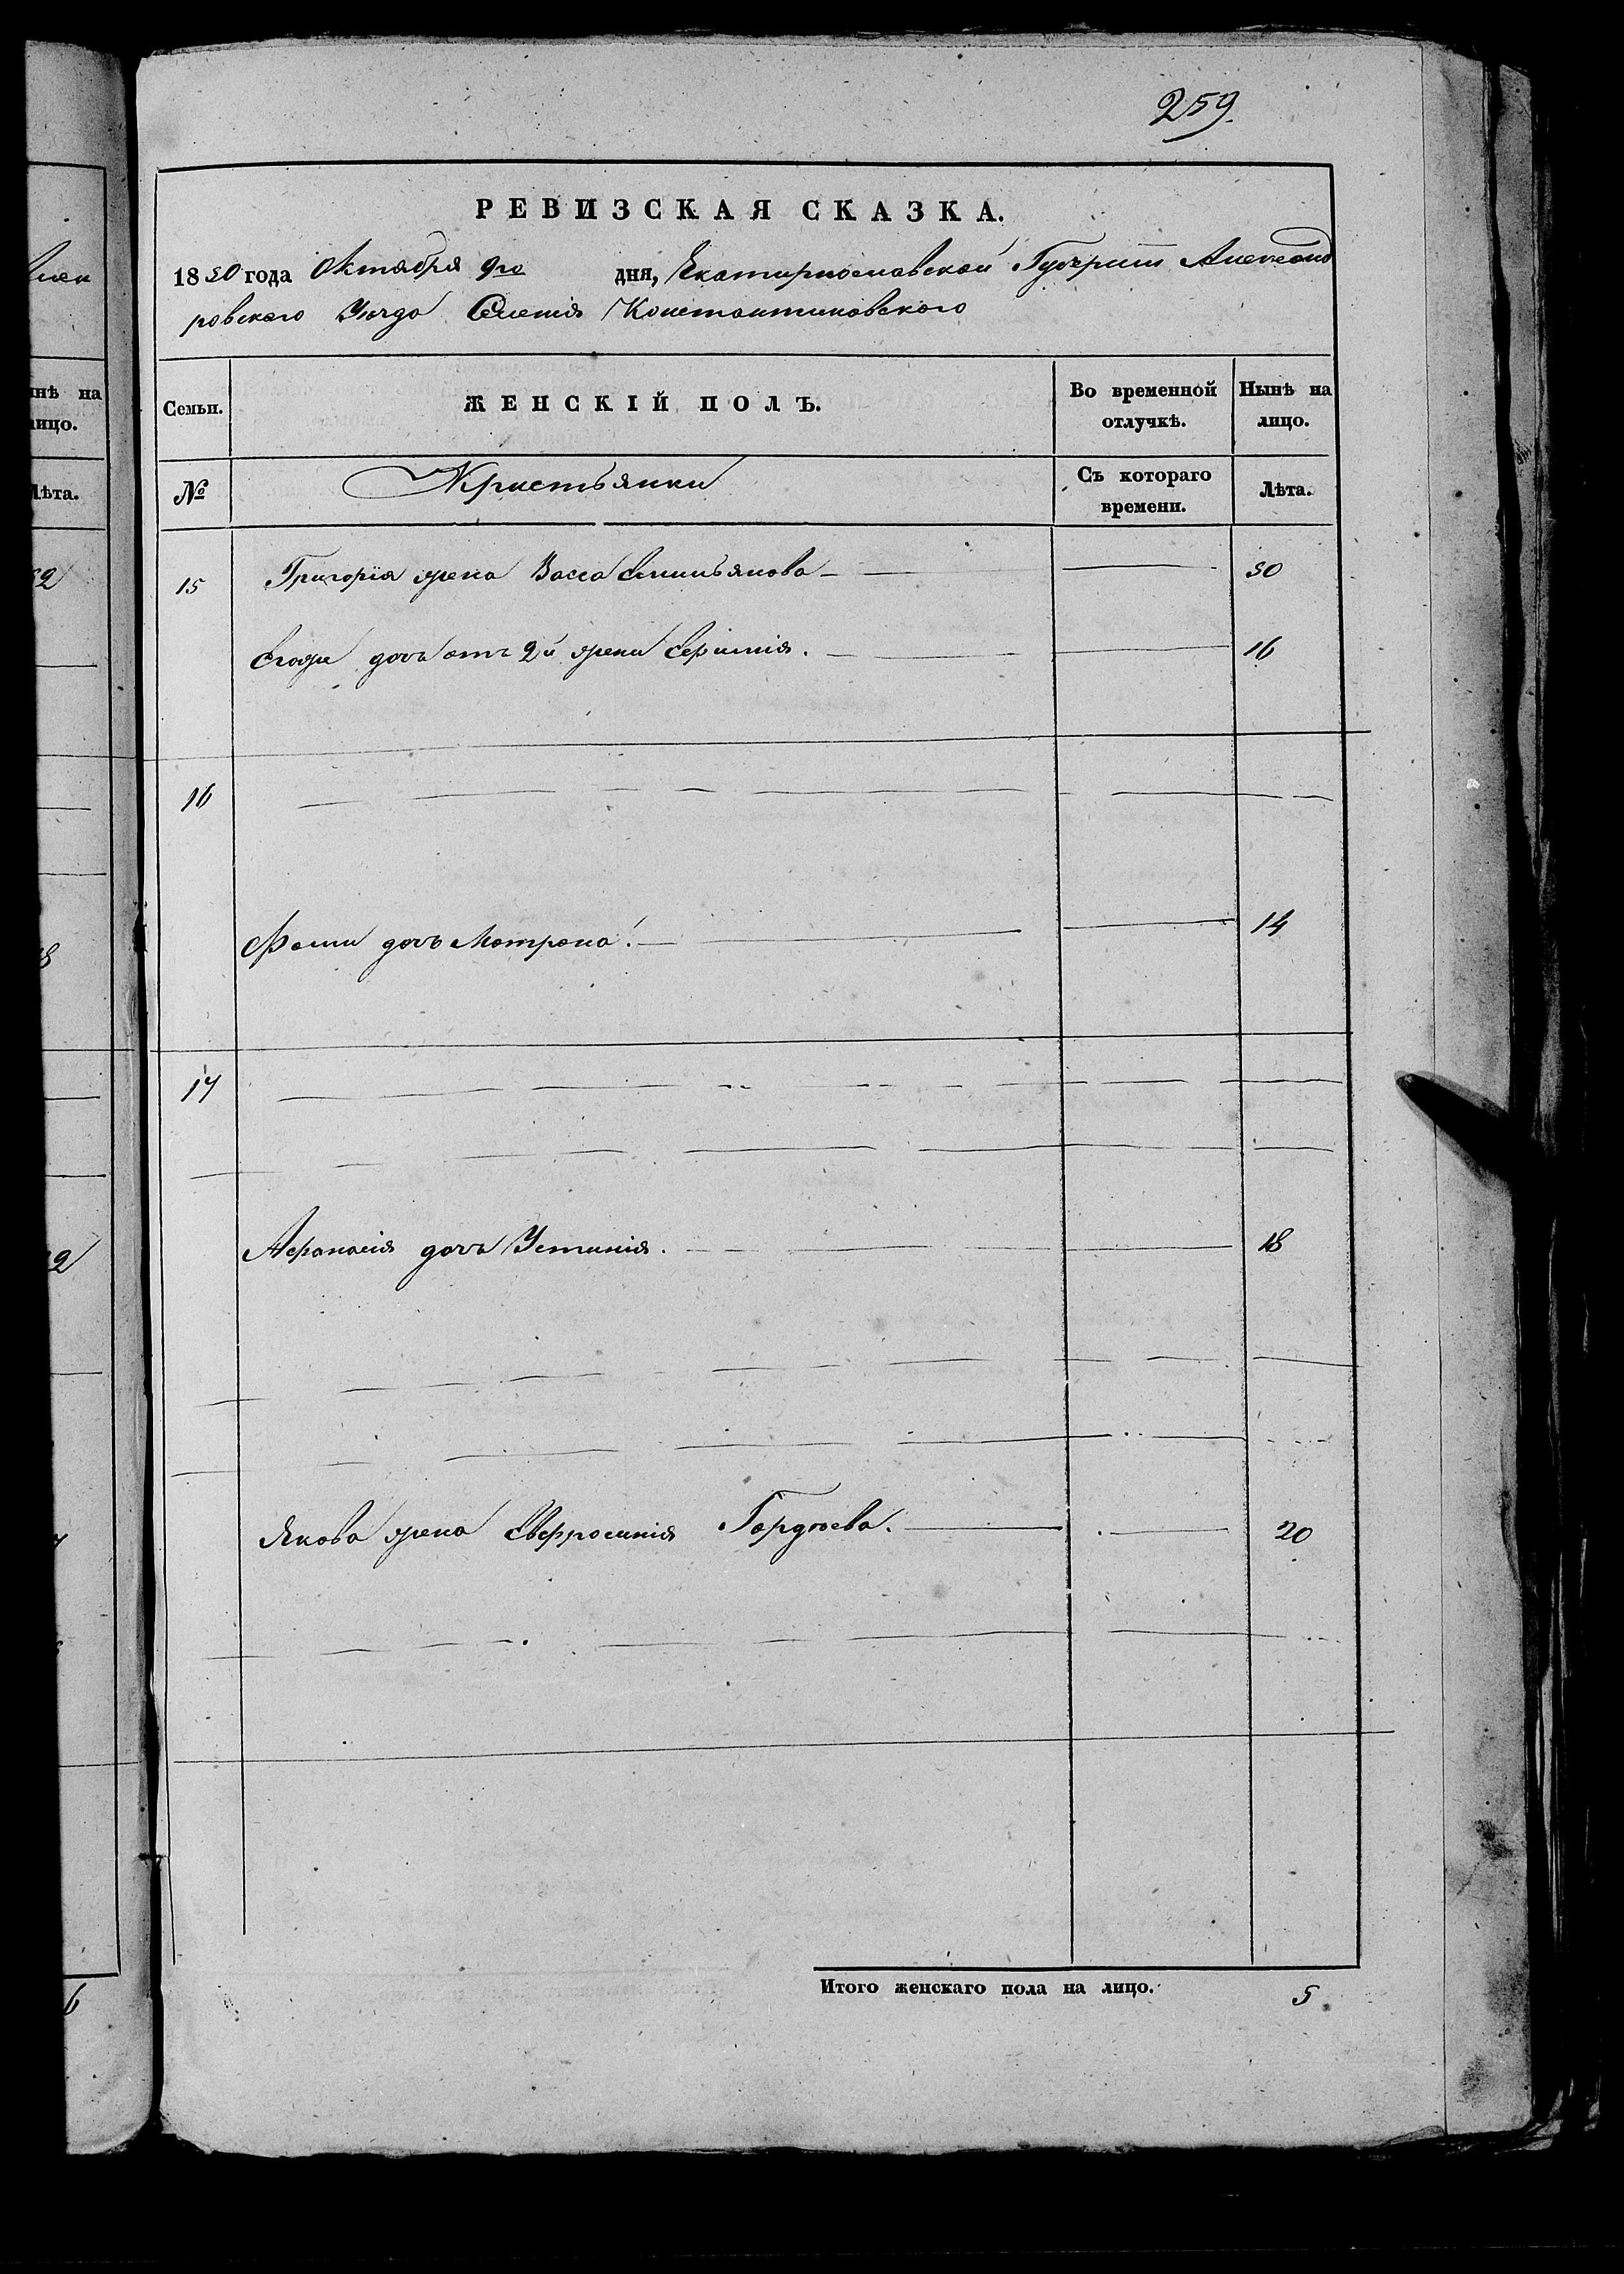 259.
РЕВИЗСКАЯ СКАЗКА.
1850 года Октября 9го дня, Екатеринославской Губернiи Александ
ровского Уезда Селения Константиновского
Семьи. ЖЕНСКІЙ ПОЛЪ. Во временной отлучкѣ. Нынѣ на лицо.
№ Кристьянки Съ котораго времени. Лѣта.
15 Григорiя жена Васса Емильянова 50
Его же дочь отъ 2й жены 16
16
Фомы дочь Матрона 14
17
Афанасiя дочь Устинiя. 18
Якова жена Евфросинiя Гордѣева. 20
Итого женскаго пола на лицо. 5
нѣ на
ицо.
Лѣта.